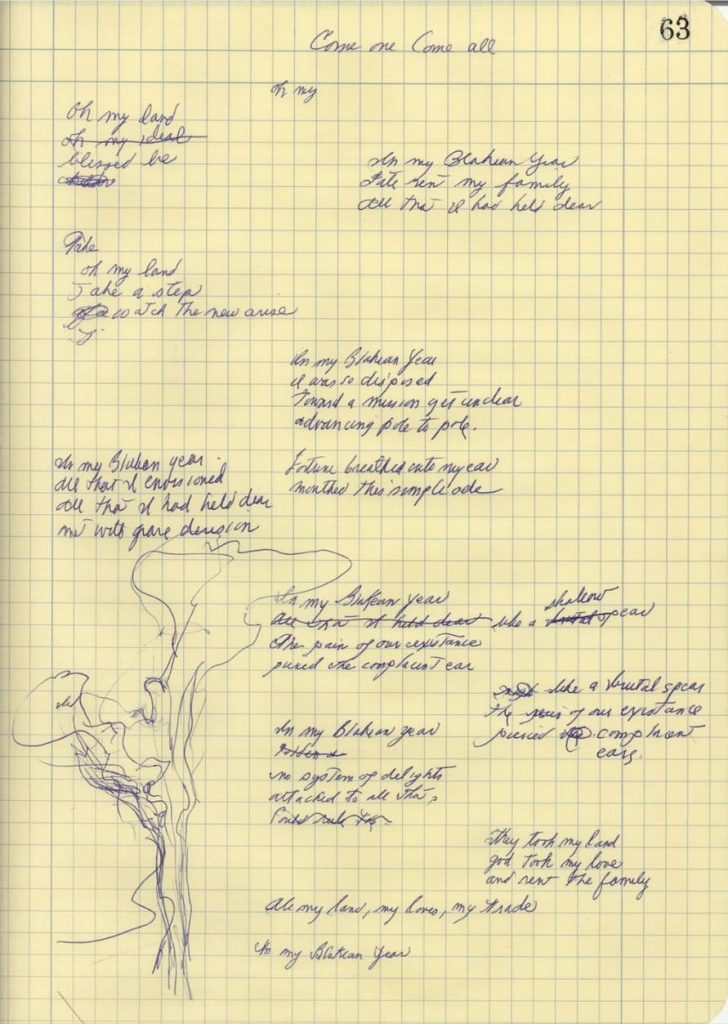 63
Come one Come all
Oh my
Oh my land
Oh my ideal
blessed be
In my Blakean Year
Fate rent my family
All that I had held dear
Take
oh my land
Take a step
watch the new arise
In my Blakean Year
I was so disposed
Toward a mission yet unclear
advancing pole to pole.
Fortune breathed into my ear
mouthed this simple ode
In my Blakean year.
All that I envisioned
All that I had held dear
met with grave derision
In my Blakean year
All that I held dear like a shallow brutal spear
The pain of our existance
pierced the complaint ear
like a brutal spear
the pain of our existance
pierced complaint
ears.
In my Blakean year
no system of delights
attached to all that,
Could rule
They took my land
god took my love
and rent the family
All my land, my loves, my trade
In my Blakean Year